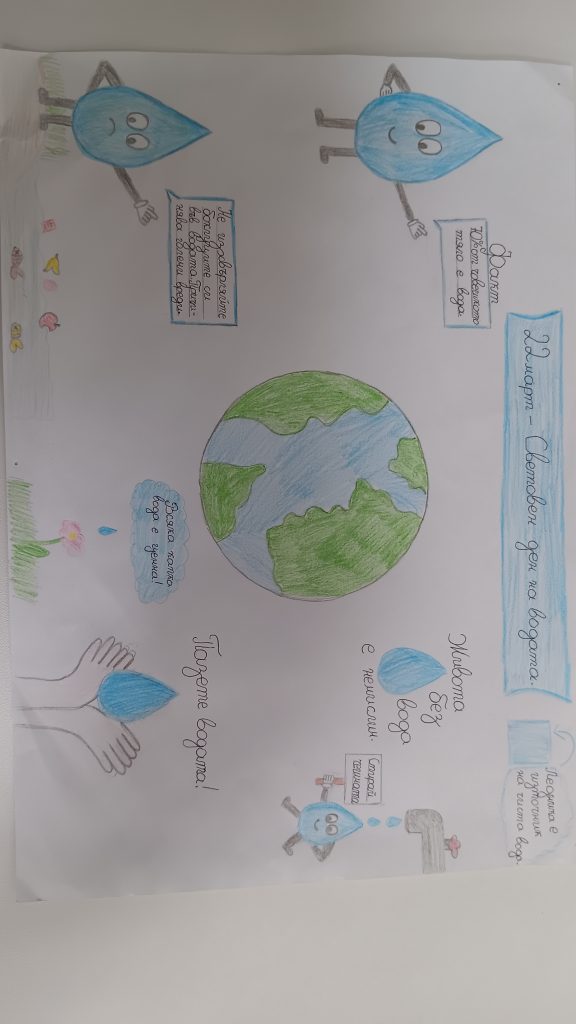 22 март - Световен ден на водата.
Факт
70% от човешкото
тяло е вода.
Ледовете
изтоочник
на чиста вода.
Живота
без
вода
е немислим.
Спирай
чешмата
Не изхвърляйте
боклуците си
във водата. Причи-
нява големи вреди.
Всяка капка
вода е ценна!
Пазете водата!